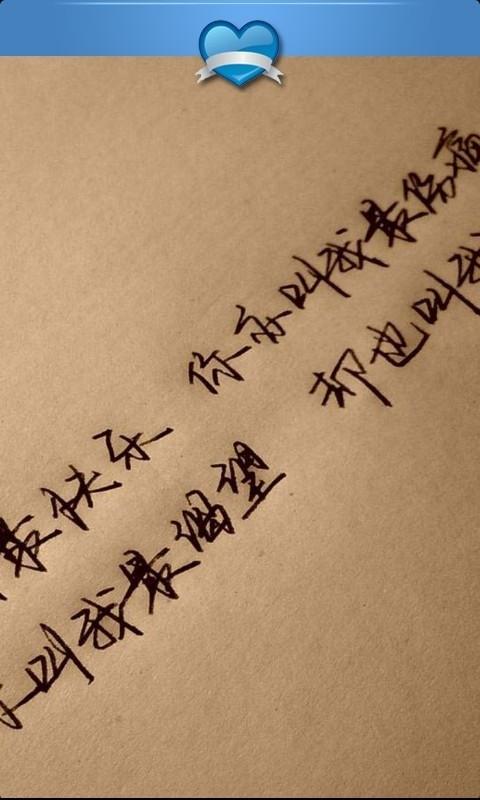 最快乐 你亦叫我最伤
叫我最渴望 却也叫我